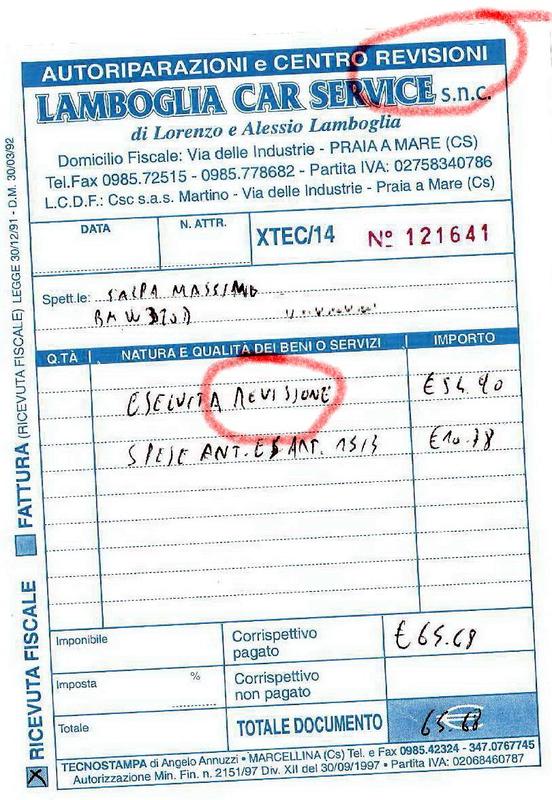 AUTORIPARAZIONI e CENTRO REVISIONI
LAMBOGLIA CAR SERVICE s.n.c.
di Lorenzo e Alessio Lamboglia
Domicilio Fiscale: Via delle Industrie - PRAIA A MARE (CS)
Tel.Fax 0985.72515 - 0985.778682 - Partita IVA: 02758340786
L.C.D.F.: Csc s.a.s. Martino - Via delle Industrie - Praia a Mare (Cs)
DATA
N. ATTR.
XTEC/14 Nº 121641
Spett.le: SALPA MASSIMO
BMW 320D
Q.TÀ NATURA E QUALITÀ DEI BENI O SERVIZI IMPORTO
ESEGUITA REVISIONE €54.90
SPESE ANT. ES ANT. 1513 €10.78
Imponibile Corrispettivo pagato €65.68
Imposta % Corrispettivo non pagato
Totale TOTALE DOCUMENTO 65.68
TECNOSTAMPA di Angelo Annuzzi • MARCELLINA (Cs) Tel. e Fax 0985.42324 - 347.0767745
Autorizzazione Min. Fin. n. 2151/97 Div. XII del 30/09/1997 • Partita IVA: 02068460787
X RICEVUTA FISCALE FATTURA (RICEVUTA FISCALE) LEGGE 30/12/91 - D.M. 30/03/92